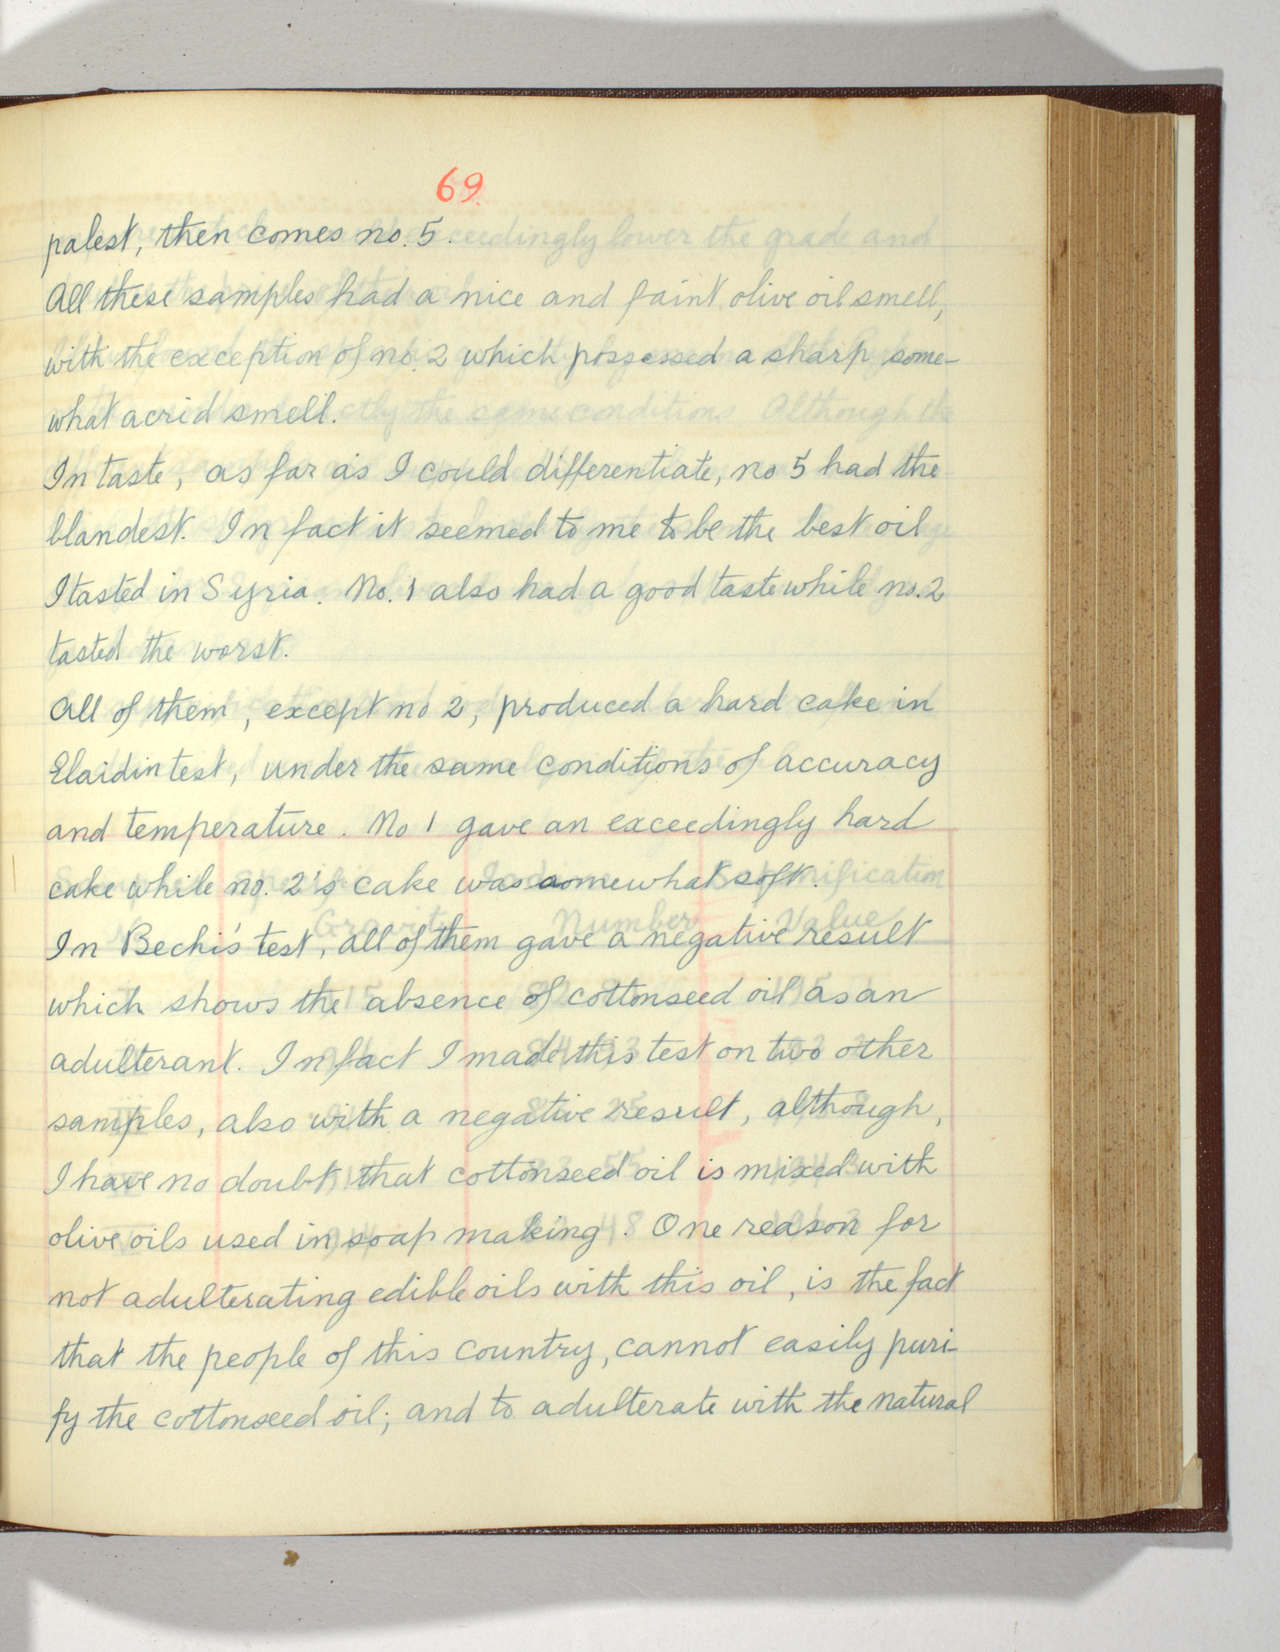 69.
palest, then comes no. 5.
All these samples had a nice and faint olive oil smell,
with the exception of no. 2 which possessed a sharp some-
what acrid smell.
In taste, as far as I could differentiate, no 5 had the
blandest. In fact it seemed to me to be the best oil
I tasted in Syria. No. 1 also had a good taste while no. 2
tasted the worst.
All of them, except no 2, produced a hard cake in
Elaidin test, under the same conditions of accuracy
and temperature. No 1 gave an exceedingly hard
cake while no. 2's cake was somewhat soft.
In Bechi's test, all of them gave a negative result
which shows the absence of cottonseed oil as an
adulterant. In fact I made this test on two other
samples, also with a negative result, although,
I have no doubt that cottonseed oil is mixed with
olive oils used in soap making. One reason for
not adulterating edible oils with this oil, is the fact
that the people of this country, cannot easily puri-
fy the cottonseed oil; and to adulterate with the natural